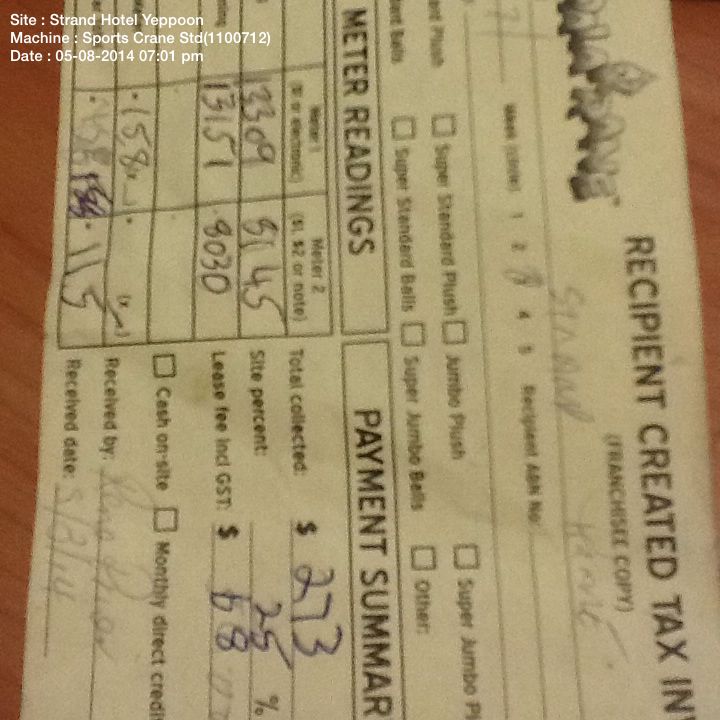 Site : Strand Hotel Yeppoon
Machine : Sports Crane Std(1100712)
Date : 05-08-2014 07:01 pm
RECIPIENT CREATED TAX IN
(FRANCHISEE COPY)
Strand
Week (circle) 1 2 3 4 5 Recipient ABN No
Plush Super Standard Plush Jumbo Plush Super Jumbo Pl
Balls Super Standard Balls Super Jumbo Balls Other:
METER READINGS
Meter 1 Meter 2
($1 or electronic) ($1, $2 or note)
13309 8145
13151 8030
158 115
PAYMENT SUMMAR
Total collected: $ 273
Site percent: 25 %
Lease fee incl GST: $ 68
Cash on-site Monthly direct credi
Received by:
Received date: 5/8/14